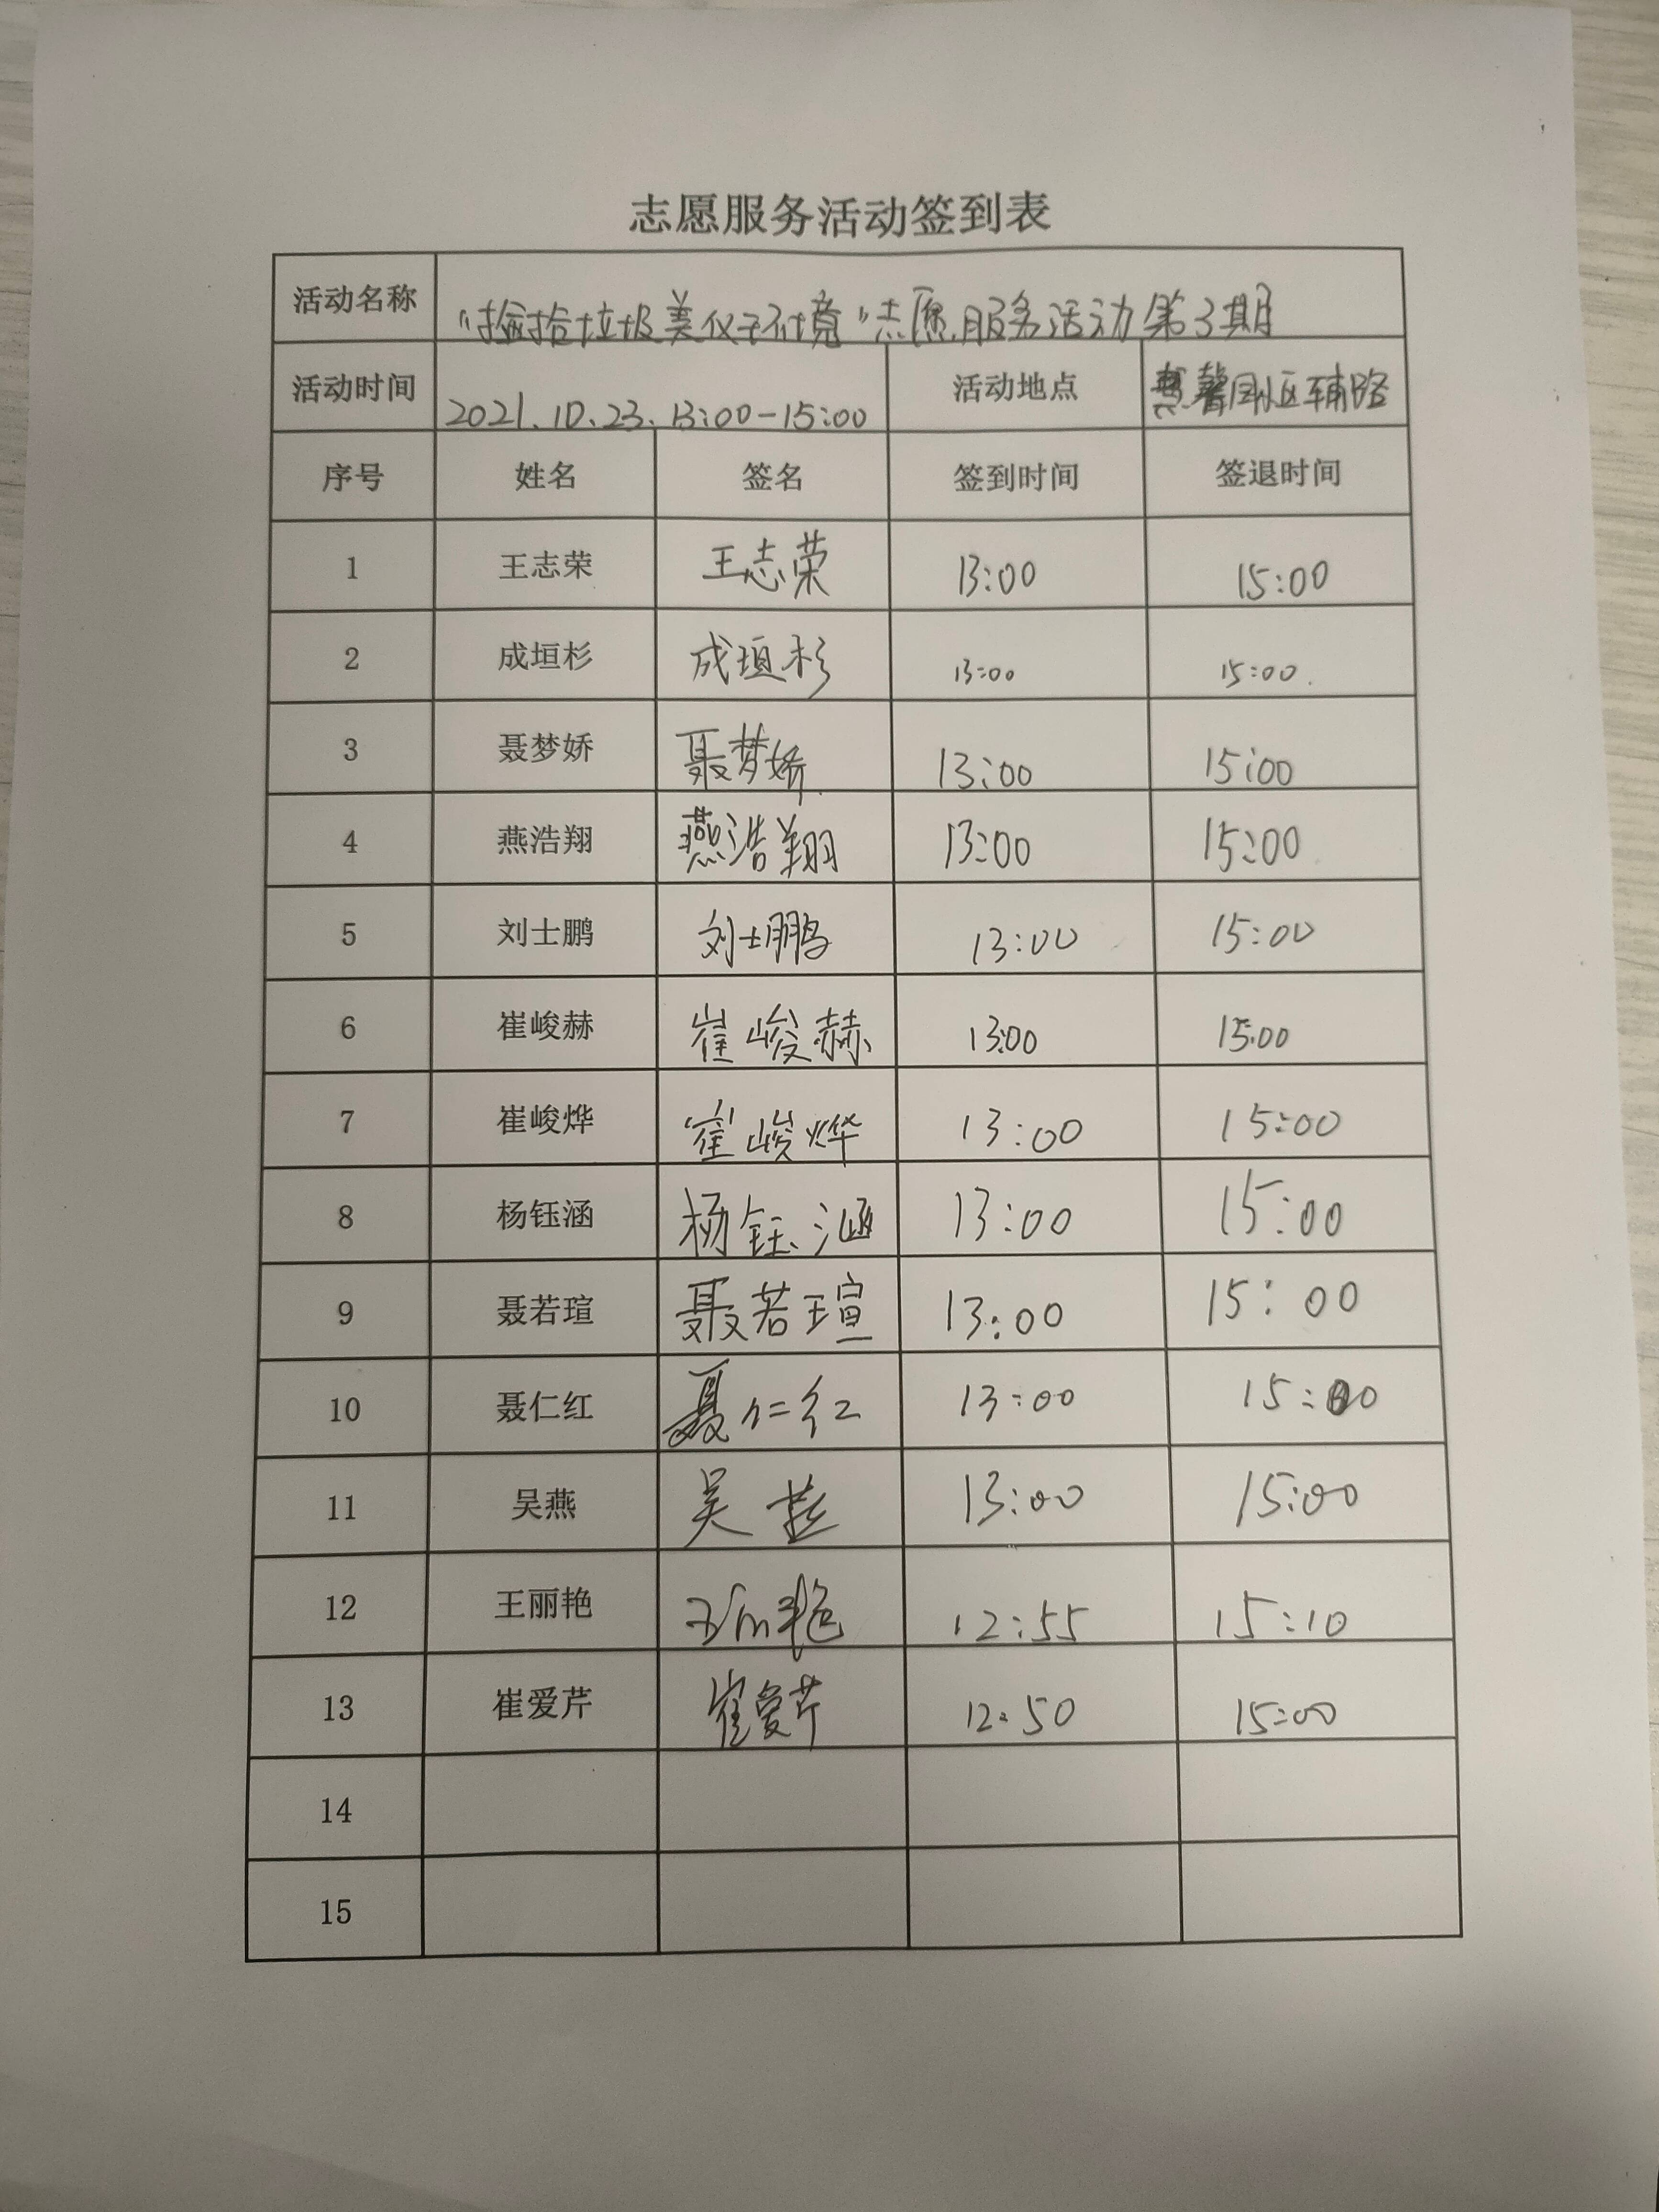 志愿服务活动签到表
活动名称 "捡拾垃圾美化环境"志愿服务活动第3期
活动时间 2021.10.23. 13:00-15:00 活动地点 馨园小区辅路
序号 姓名 签名 签到时间 签退时间
1 王志荣 王志荣 13:00 15:00
2 成垣杉 成垣杉 13:00 15:00.
3 聂梦娇 聂梦娇 13:00 15:00
4 燕浩翔 燕浩翔 13:00 15:00
5 刘士鹏 刘士鹏 13:00 15:00
6 崔峻赫 崔峻赫 13:00 15:00
7 崔峻烨 崔峻烨 13:00 15:00
8 杨钰涵 杨钰涵 13:00 15:00
9 聂若瑄 聂若瑄 13:00 15:00
10 聂仁红 聂仁红 13:00 15:00
11 吴燕 吴燕 13:00 15:00
12 王丽艳 王丽艳 12:55 15:10
13 崔爱芹 崔爱芹 12:50 15:00
14
15